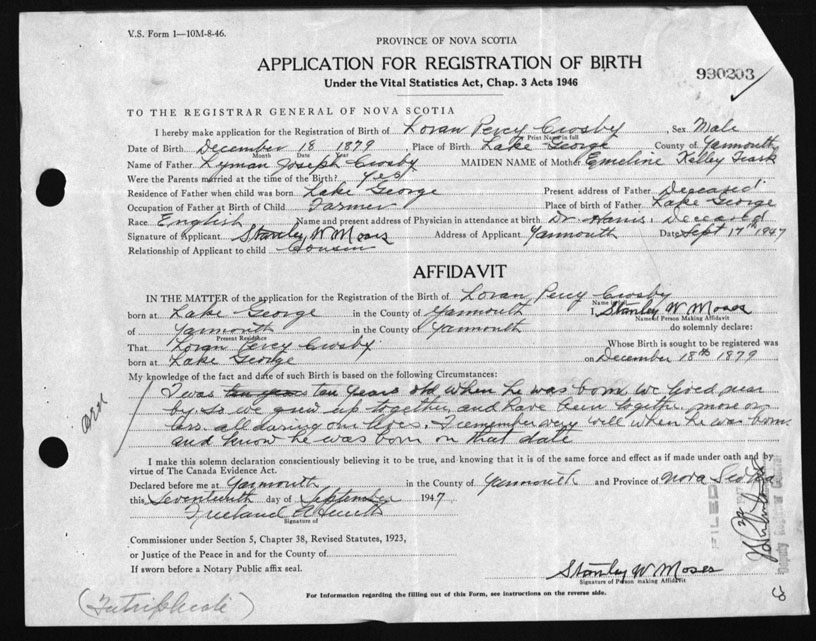 V.S. Form 1—10M-8-46.
PROVINCE OF NOVA SCOTIA
APPLICATION FOR REGISTRATION OF BIRTH
990203
Under the Vital Statistics Act, Chap. 3 Acts 1946
TO THE REGISTRAR GENERAL OF NOVA SCOTIA
I hereby make application for the Registration of Birth of Loran Percy Crosby, Sex Male
Print Name in full
Date of Birth December 18 1879, Place of Birth Lake George County of Yarmouth
Month Date Year
Name of Father Lyman Joseph Crosby MAIDEN NAME of Mother Emeline Kelley
Were the Parents married at the time of Birth? Yes
Residence of Father when child was born Lake George Present address of Father Deceased
Occupation of Father at Birth of Child Farmer Place of birth of Father Lake George
Race English Name and present address of Physician in attendance at birth Dr Harris. Deceased
Signature of Applicant Stanley W Moses Address of Applicant Yarmouth Date Sept 17th 1947
Relationship of Applicant to child Cousin
AFFIDAVIT
IN THE MATTER of the application for the Registration of the Birth of Loran Percy Crosby
Name in full
born at Lake George in the County of Yarmouth I, Stanley W Moses
Name of Person Making Affidavit
of Yarmouth in the County of Yarmouth do solemnly declare:
Present Residence
That Loran Percy Crosby Whose Birth is sought to be registered was
born at Lake George on December 18th 1879
My knowledge of the fact and date of such Birth is based on the following Circumstances:
I was ten years ten years old when he was born we lived near
by so we grew up together, and have been together more or
less all during our lives. I remember very well when he was born
and know he was born on that date
I make this solemn declaration conscientiously believing it to be true, and knowing that it is of the same force and effect as if made under oath and by
virtue of The Canada Evidence Act.
Declared before me at Yarmouth in the County of Yarmouth and Province of Nova Scotia
this Seventeenth day of September 1947
Signature of
FILED
Commissioner under Section 5, Chapter 38, Revised Statutes, 1923,
or Justice of the Peace in and for the County of
If sworn before a Notary Public affix seal.
Stanley W Moses
Signature of Person making Affidavit
For Information regarding the filling out of this Form, see instructions on the reverse side.
(In triplicate)